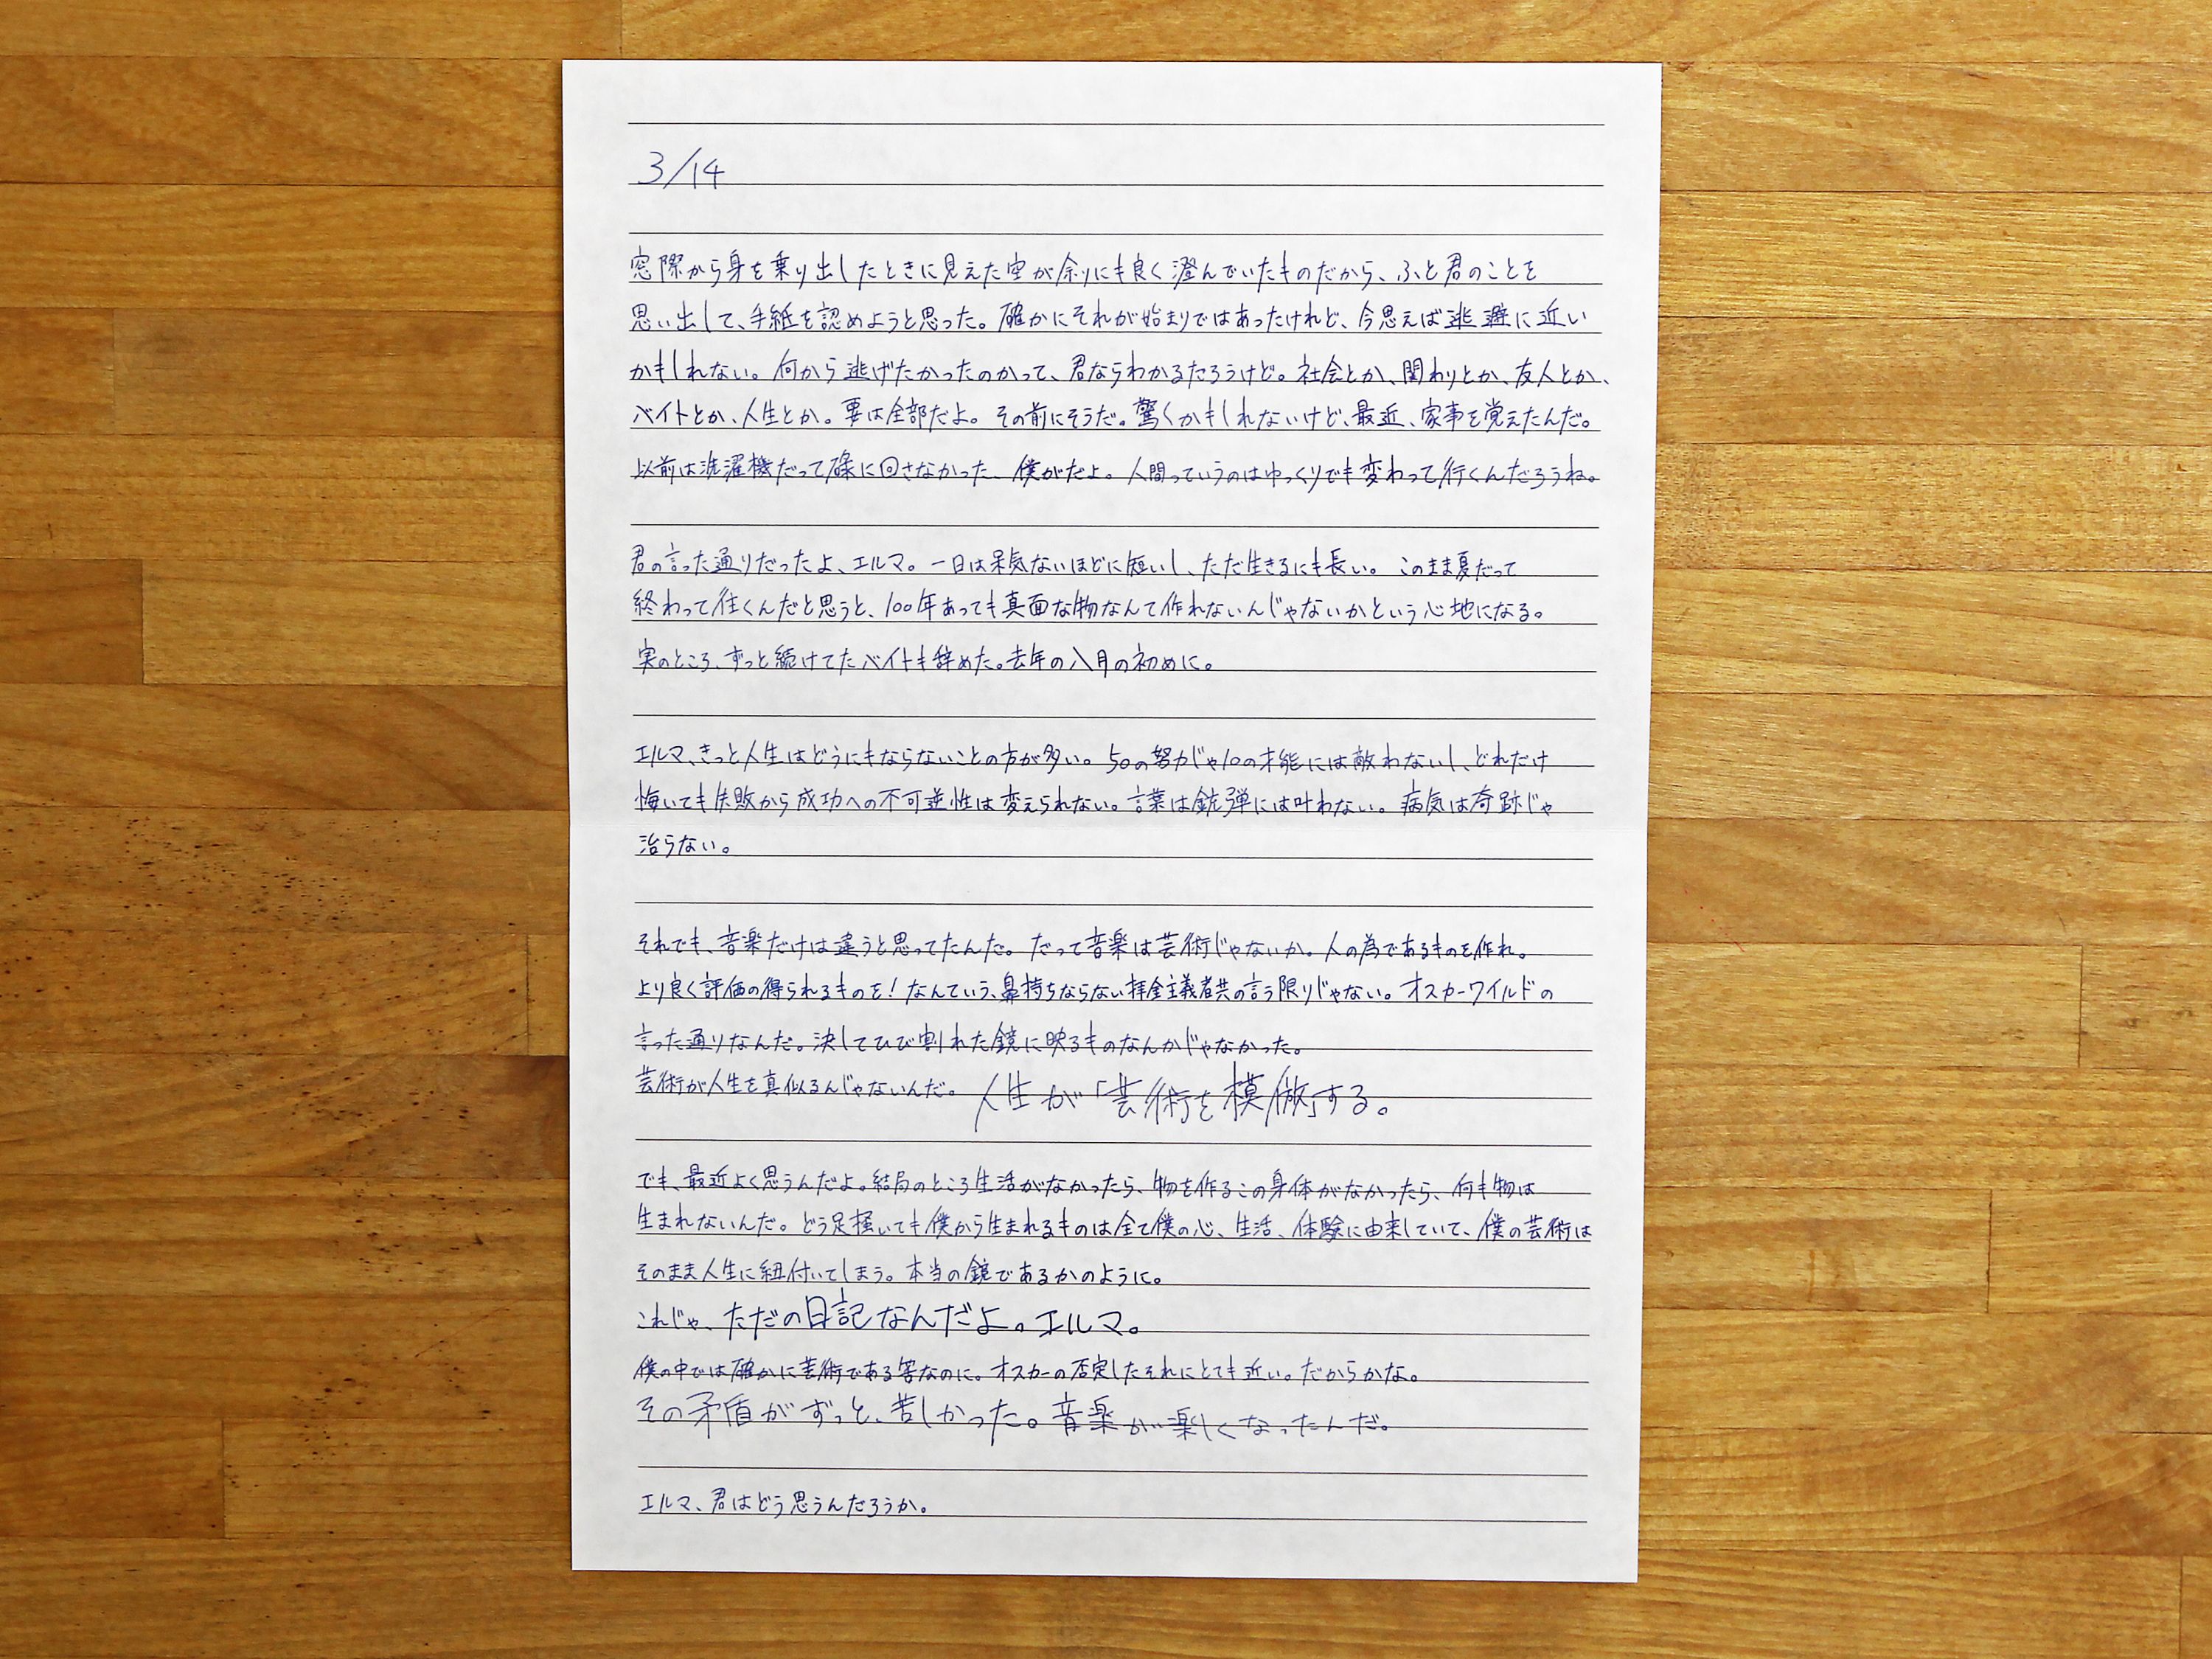 3/14
窓際から身を乗り出したときに見えた空が余りにも良く澄んでいたものだから、ふと君のことを
思い出して、手紙を認めようと思った。確かにそれが始まりではあったけれど、今思えば逃避に近い
かもしれない。何から逃げたかったのかって、君ならわかるだろうけど。社会とか、関わりとか、友人とか、
バイトとか、人生とか。要は全部だよ。その前にそうだ。驚くかもしれないけど、最近、家事を覚えたんだ。
以前は洗濯機だって碌に回さなかった、僕がだよ。人間っていうのはゆっくりでも変わって行くんだろうね。
君の言った通りだったよ、エルマ。一日は呆気ないほどに短いし、ただ生きるにも長い。このまま夏だって
終わって往くんだと思うと、100年あっても真面な物なんて作れないんじゃないかという心地になる。
実のところ、ずっと続けてたバイトも辞めた。去年の八月の初めに。
エルマ、きっと人生はどうにもならないことの方が多い。50の努力じゃ10の才能には敵わないし、どれだけ
悔いても失敗から成功への不可逆性は変えられない。言葉は銃弾には叶わない。病気は奇跡じゃ
治らない。
それでも、音楽だけは違うと思ってたんだ。だって音楽は芸術じゃないか。人の為であるものを作れ。
より良く評価の得られるものを！なんていう、鼻持ちならない拝金主義者共の言う限りじゃない。オスカーワイルドの
言った通りなんだ。決してひび割れた鏡に映るものなんかじゃなかった。
芸術が人生を真似るんじゃないんだ。人生が「芸術を模倣」する。
でも、最近よく思うんだよ。結局のところ生活がなかったら、物を作るこの身体がなかったら、何も物は
生まれないんだ。どう足掻いても僕から生まれるものは全て僕の心、生活、体験に由来していて、僕の芸術は
そのまま人生に紐付いてしまう。本当の鏡であるかのように。
これじゃ、ただの日記なんだよ。エルマ。
僕の中では確かに芸術である筈なのに。オスカーの否定したそれにとても近い。だからかな。
その矛盾がずっと、苦しかった。音楽が楽しくなったんだ。
エルマ、君はどう思うんだろうか。